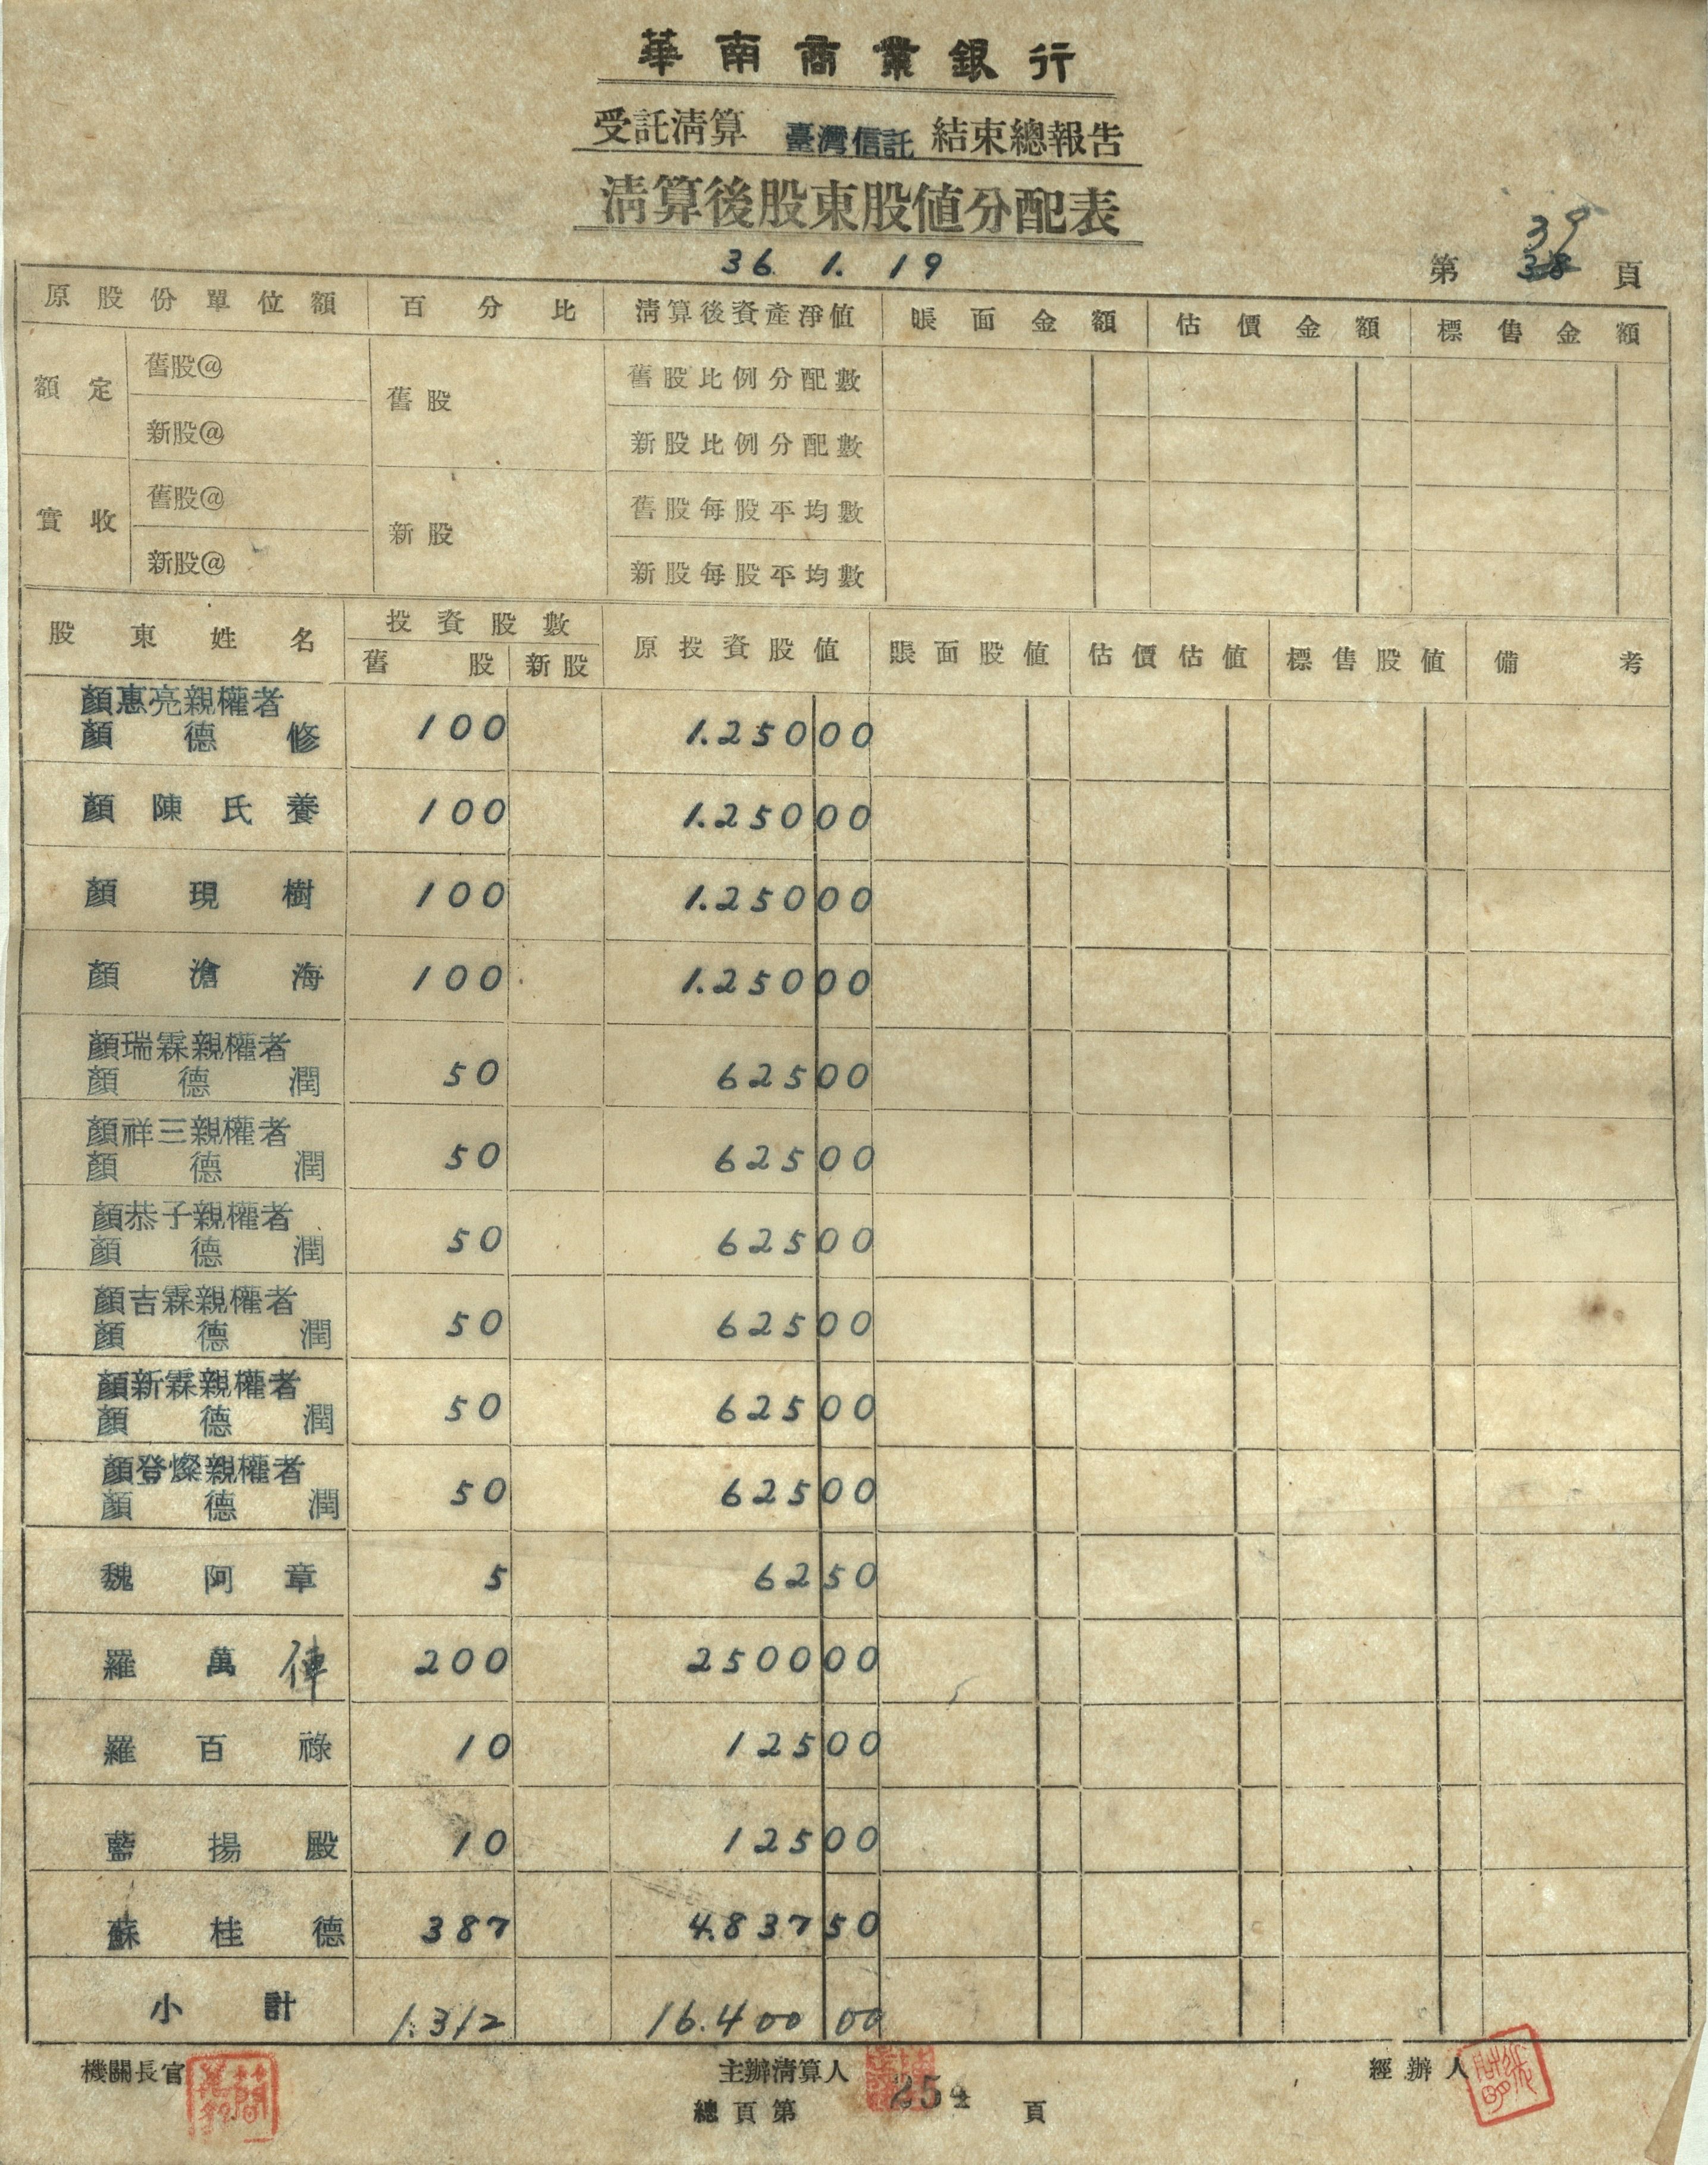 華南商業銀行
受託清算 臺灣信託 結束總報告
清算後股東股值分配表
36. 1. 19
第 39 38 頁
原股份單位額 百分比 清算後資產淨值 賬面金額 估價金額 標售金額
額定 舊股@ 舊股 舊股比例分配數
新股@ 新股比例分配數
實收 舊股@ 新股 舊股每股平均數
新股@ 新股每股平均數
股東姓名 投資股數 原投資股值 賬面股值 估價估值 標售股值 備考
舊股 新股
顏惠亮親權者
顏德修 100 1.250 00
顏陳氏養 100 1.250 00
顏現樹 100 1.250 00
顏滄海 100 1.250 00
顏瑞霖親權者
顏德潤 50 625 00
顏祥三親權者
顏德潤 50 625 00
顏恭子親權者
顏德潤 50 625 00
顏吉霖親權者
顏德潤 50 625 00
顏新霖親權者
顏德潤 50 625 00
顏登燦親權者
顏德潤 50 625 00
魏阿章 5 62 50
羅萬俥 200 2500 00
羅百祿 10 125 00
藍揚殿 10 125 00
蘇桂德 387 4.837 50
小計 1.312 16.400 00
機關長官 主辦清算人 經辦人
總頁第 254 頁